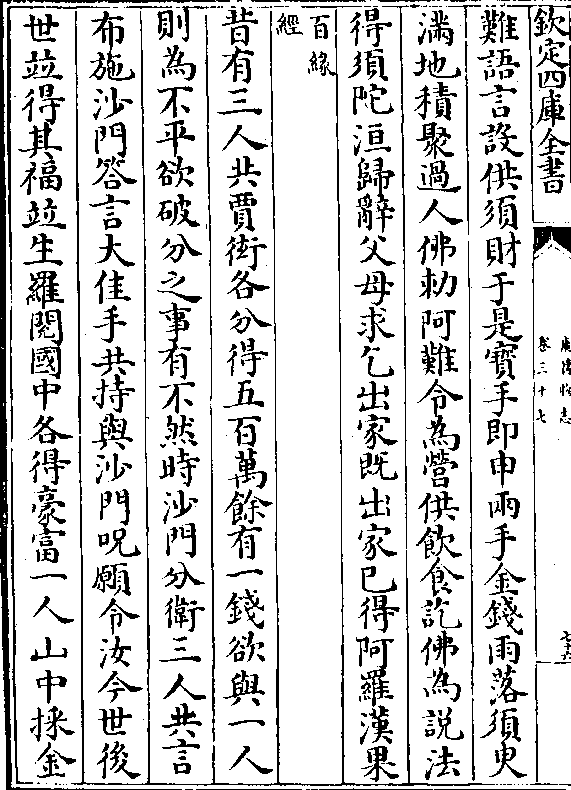 欽定四庫全書
卷三十七
難語言設供須財于是寳手即申兩手金錢雨落須臾
滿地積聚過人佛勅阿難令為營供飲食訖佛為說法
得須陀洹歸辭父母求乞出家既出家已得阿羅漢果
百緣
經
昔有三人共賈衒各分得五百萬餘有一錢欲與一人
則為不平欲破分之事有不然時沙門分衛三人共言
布施沙門答言大佳手共持與沙門呪願令汝今世後
世竝得其福竝生羅閱國中各得豪富一人山中採金